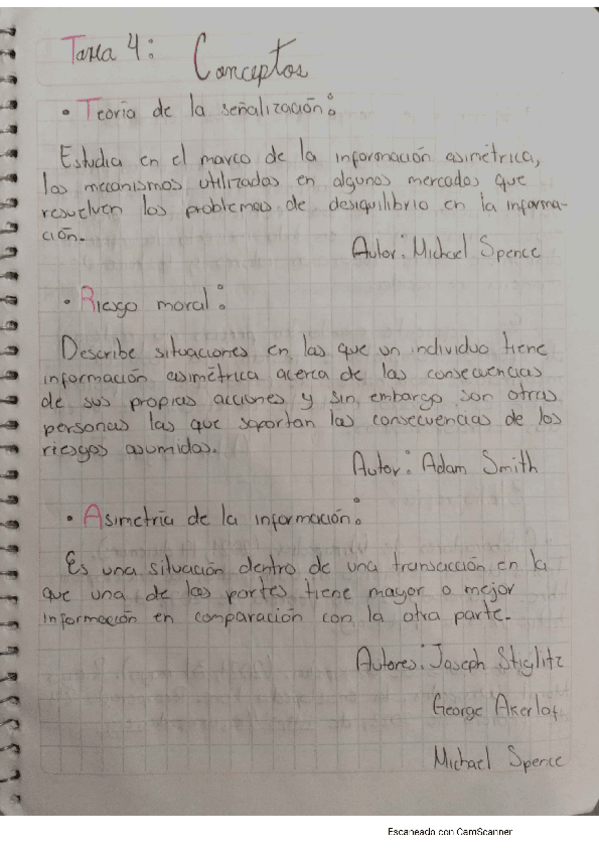 Tarea 4: Conceptos
• Teoría de la señalización:
Estudia en el marco de la información asimétrica,
los mecanismos utilizados en algunos mercados que
resuelven los problemas de desiquilibrio en la informa-
ción.
Autor: Michael Spence
• Riesgo moral:
Describe situaciones en las que un individuo tiene
información asimétrica acerca de las consecuencias
de sus propias acciones y sin embargo son otras
personas las que soportan las consecuencias de los
riesgos asumidos.
Autor: Adam Smith
• Asimetría de la información:
Es una situación dentro de una transacción en la
que una de las partes tiene mayor o mejor
información en comparación con la otra parte.
Autores: Joseph Stiglitz
George Akerlof
Michael Spence
Escaneado con CamScanner